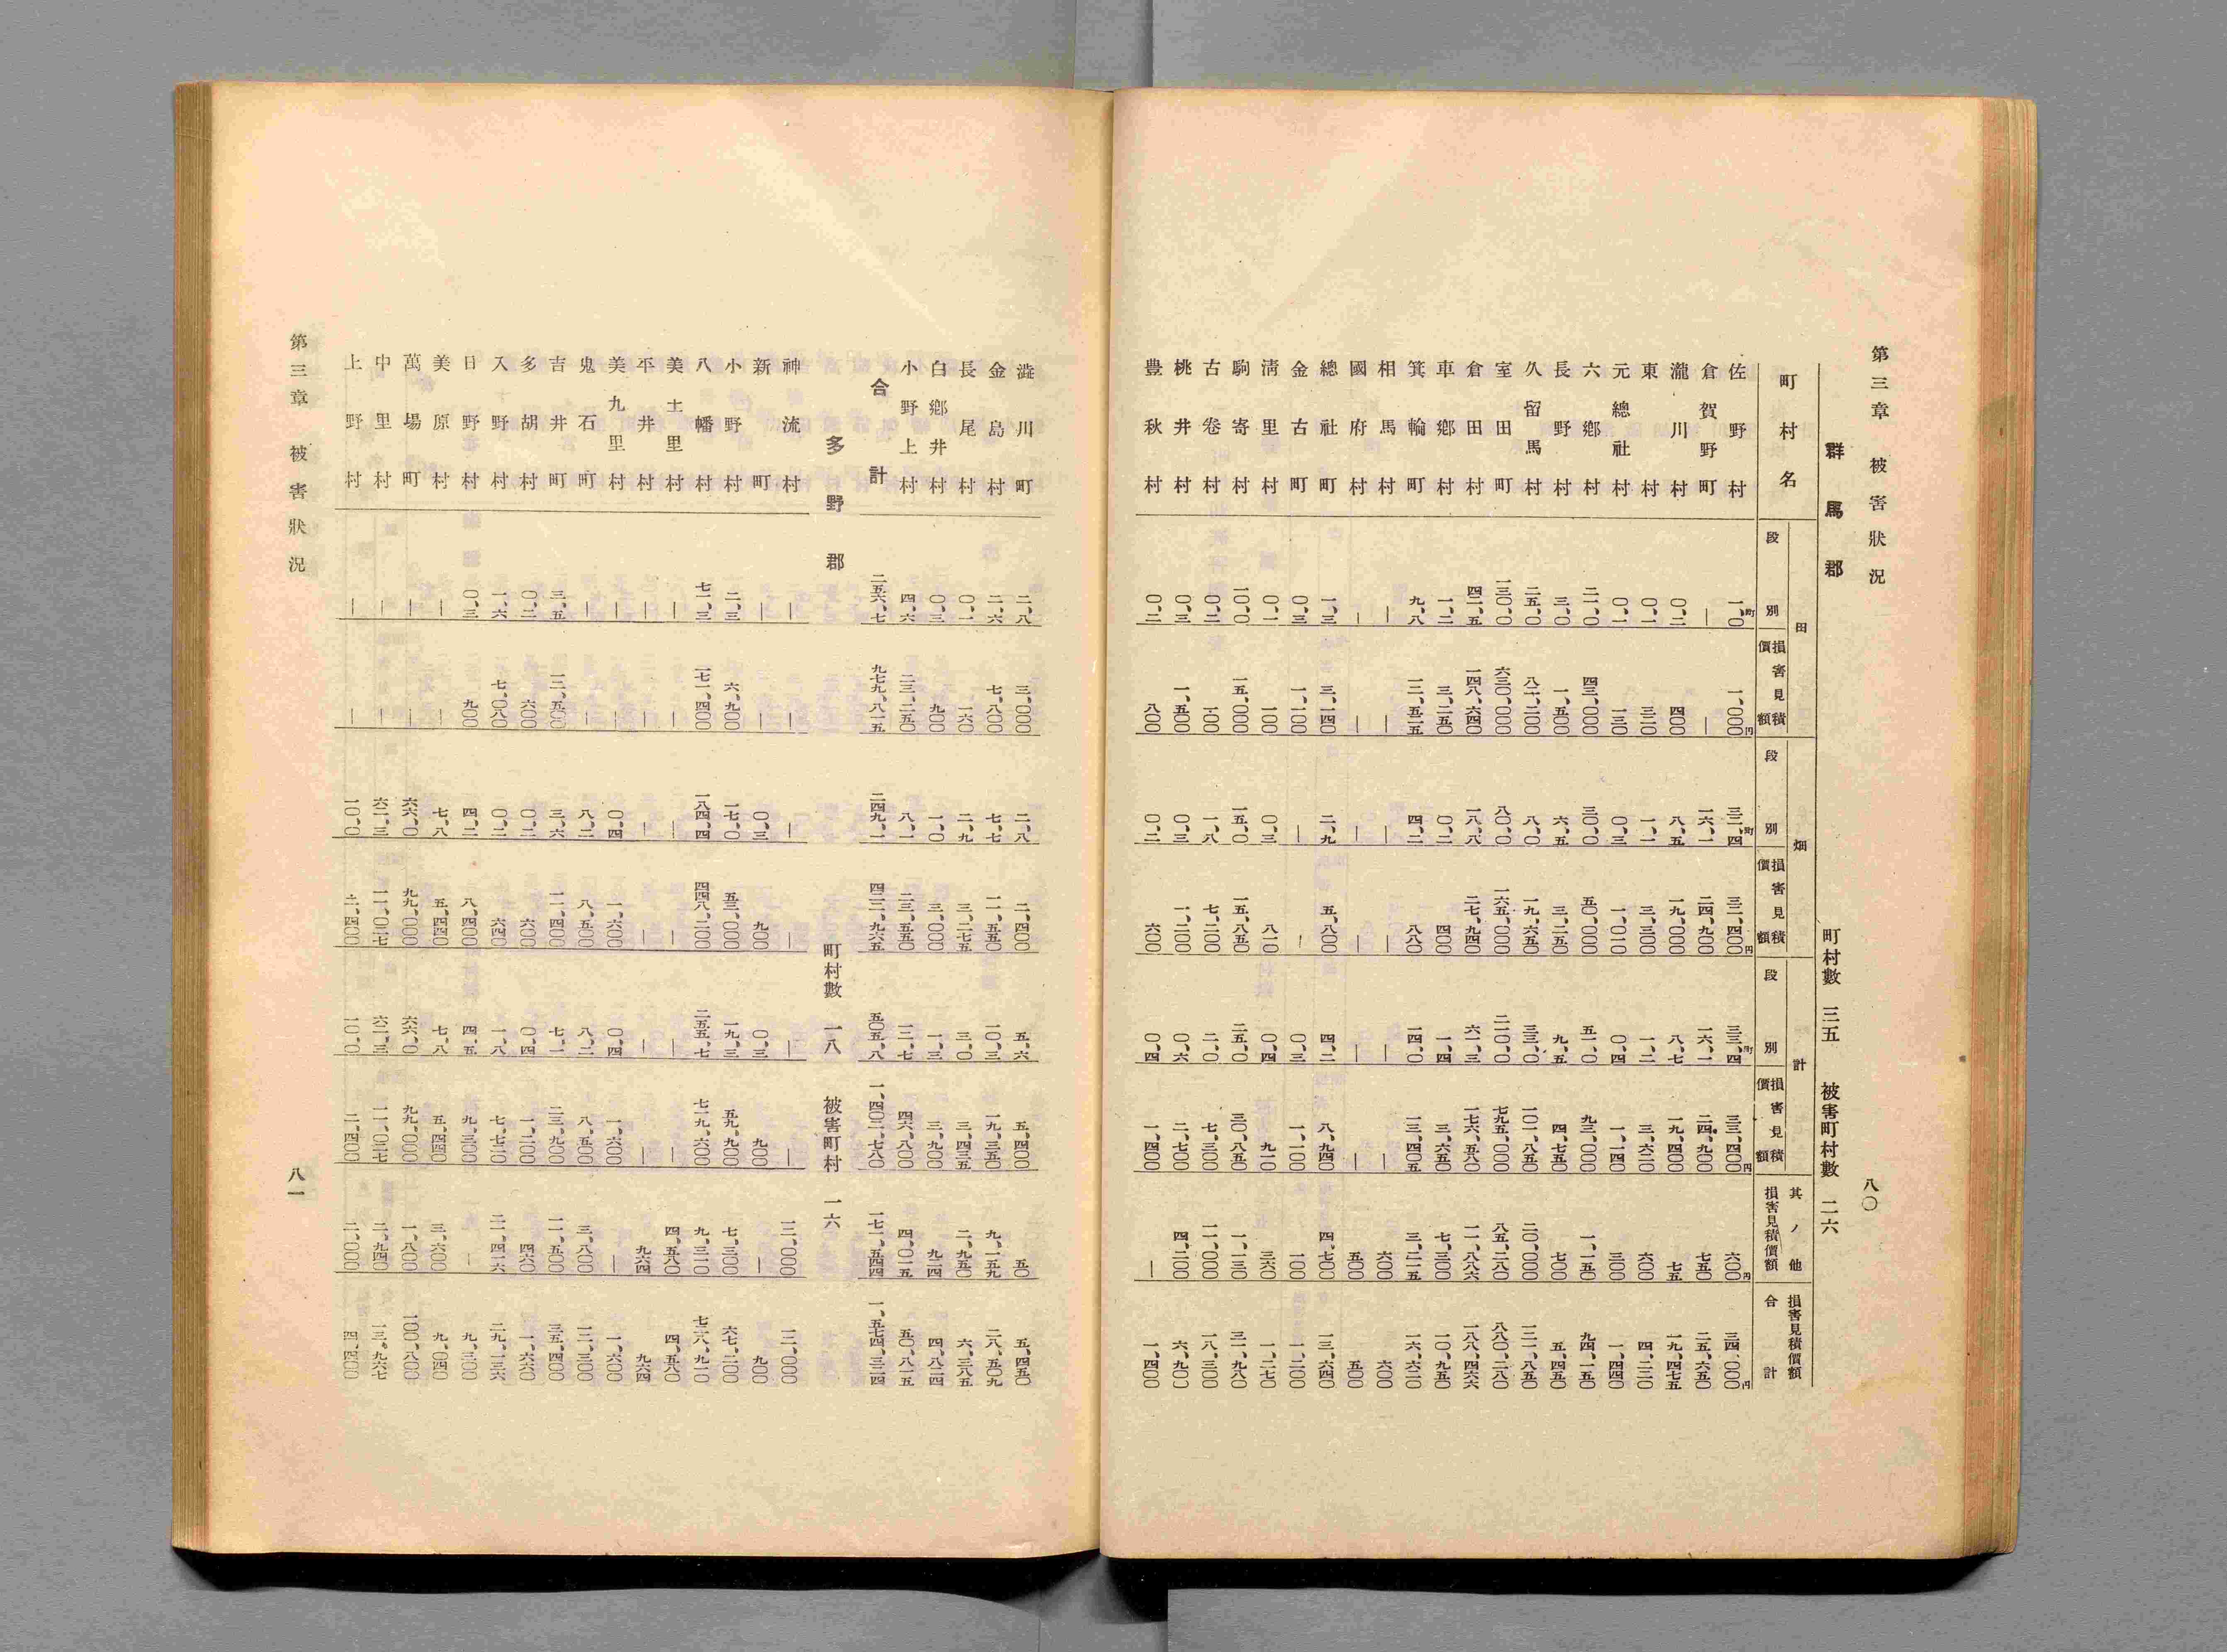 第三章 被害狀況 八〇
群馬郡 町村數 三五 被害町村數 二六
町村名 田 段別 損害見積價額 畑 段別 損害見積價額 計 段別 損害見積價額 其ノ他損害見積價額 損害見積價額合計
佐野村 一、〇町 一、〇〇〇円 三二、四町 三二、四〇〇円 三三、四町 三三、四〇〇円 六〇〇円 三四、〇〇〇円
倉賀野町 ― ― 一六、一 二四、九〇〇 一六、一 二四、九〇〇 七五〇 二五、六五〇
瀧川村 〇、二 四〇〇 八、五 一九、〇〇〇 八、七 一九、四〇〇 七五 一九、四七五
東村 〇、一 三二〇 一、一 三、三〇〇 一、二 三、六二〇 六〇〇 四、二二〇
元總社村 〇、一 一三〇 〇、三 一、〇一〇 〇、四 一、一四〇 三〇〇 一、四四〇
六鄉村 二一、〇 四三、〇〇〇 三〇、〇 五〇、〇〇〇 五一、〇 九三、〇〇〇 一、一五〇 九四、一五〇
長野村 三、〇 一、五〇〇 六、五 三、二五〇 九、五 四、七五〇 七〇〇 五、四五〇
久留馬村 二五、〇 八二、二〇〇 八、〇 一九、六五〇 三三、〇 一〇一、八五〇 二〇、〇〇〇 一二一、八五〇
室田町 一三〇、〇 六三〇、〇〇〇 八〇、〇 一六五、〇〇〇 二一〇、〇 七九五、〇〇〇 八五、二八〇 八八〇、二八〇
倉田村 四二、五 一四八、六四〇 一八、八 二七、九四〇 六一、三 一七六、五八〇 一一、八八六 一八八、四六六
車鄉村 一、二 三、二五〇 〇、二 四〇〇 一、四 三、六五〇 七、三〇〇 一〇、九五〇
箕輪町 九、八 一二、五二五 四、二 八八〇 一四、〇 一三、四〇五 三、二一五 一六、六二〇
相馬村 ― ― ― ― ― ― 六〇〇 六〇〇
國府村 ― ― ― ― ― ― 五〇〇 五〇〇
總社町 一、三 三、一四〇 二、九 五、八〇〇 四、二 八、九四〇 四、七〇〇 一三、六四〇
金古町 〇、三 一、一〇〇 ― ― 〇、三 一、一〇〇 一〇〇 一、二〇〇
淸里村 〇、一 一〇〇 〇、三 八一〇 〇、四 九一〇 三六〇 一、二七〇
駒寄村 一〇、〇 一五、〇〇〇 一五、〇 一五、八五〇 二五、〇 三〇、八五〇 一、一三〇 三一、九八〇
古卷村 〇、二 一〇〇 一、八 七、二〇〇 二、〇 七、三〇〇 一一、〇〇〇 一八、三〇〇
桃井村 〇、三 一、五〇〇 〇、三 一、二〇〇 〇、六 二、七〇〇 四、二〇〇 六、九〇〇
豊秋村 〇、二 八〇〇 〇、二 六〇〇 〇、四 一、四〇〇 ― 一、四〇〇
澁川町 二、八 三、〇〇〇 二、八 二、四〇〇 五、六 五、四〇〇 五〇 五、四五〇
金島村 二、六 七、八〇〇 七、七 一一、五五〇 一〇、三 一九、三五〇 九、一五九 二八、五〇九
長尾村 〇、一 一六〇 二、九 三、二七五 三、〇 三、四三五 二、九五〇 六、三八五
白鄕井村 〇、三 九〇〇 一、〇 三、〇〇〇 一、三 三、九〇〇 九二四 四、八二四
小野上村 四、六 二三、二五〇 八、一 二三、五五〇 一二、七 四六、八〇〇 四、〇一五 五〇、八一五
合計 二五六、七 九七九、八一五 二四九、一 四二二、九六五 五〇五、八 一、四〇二、七八〇 一七一、五四四 一、五七四、三二四
多野郡 町村數 一八 被害町村 一六
神流村 ― ― ― ― ― ― 一二、〇〇〇 一二、〇〇〇
新町 ― ― 〇、三 九〇〇 〇、三 九〇〇 ― 九〇〇
小野村 二、三 六、九〇〇 一七、〇 五三、〇〇〇 一九、三 五九、九〇〇 七、三〇〇 六七、二〇〇
八幡村 七一、三 一七一、四〇〇 一八四、四 四四八、二〇〇 二五五、七 七一九、六〇〇 九、三一〇 七二八、九一〇
美土里村 ― ― ― ― ― ― 四、五八〇 四、五八〇
平井村 ― ― ― ― ― ― 九六四 九六四
美九里村 ― ― 〇、四 一、六〇〇 〇、四 一、六〇〇 ― 一、六〇〇
鬼石町 ― ― 八、二 八、五〇〇 八、二 八、五〇〇 三、八〇〇 一二、三〇〇
吉井町 三、五 一二、五〇〇 三、六 一一、四〇〇 七、一 二三、九〇〇 一一、五〇〇 三五、四〇〇
多胡村 〇、二 六〇〇 〇、二 六〇〇 〇、四 一、二〇〇 四六〇 一、六六〇
入野村 一、六 七、〇八〇 〇、二 六四〇 一、八 七、七二〇 二一、四一六 二九、一三六
日野村 〇、三 九〇〇 四、二 八、四〇〇 四、五 九、三〇〇 ― 九、三〇〇
美原村 ― ― 七、八 五、四四〇 七、八 五、四四〇 三、六〇〇 九、〇四〇
萬場町 ― ― 六六、〇 九九、〇〇〇 六六、〇 九九、〇〇〇 一、八〇〇 一〇〇、八〇〇
中里村 ― ― 六二、三 一一、〇二七 六二、三 一一、〇二七 二、九四〇 一三、九六七
上野村 ― ― 一〇、〇 二、四〇〇 一〇、〇 二、四〇〇 二、〇〇〇 四、四〇〇
第三章 被害狀況 八一